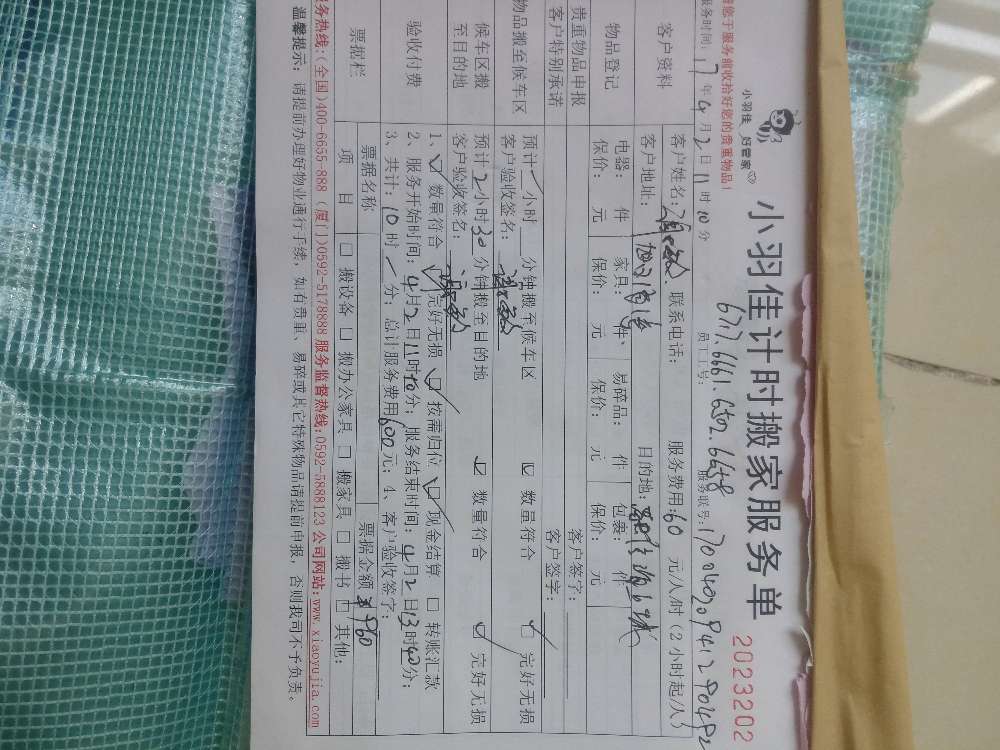 小羽佳 好管家
小羽佳计时搬家服务单
2023202
6717.6661.6502.6658
服务时间:17年4月2日11时10分 员工工号: 服务账号:
客户资料
客户姓名: 联系电话: 服务费用:60 元/人/时(2小时起/人)
客户地址: 目的地:
物品登记
电器: 件 家具: 件、 易碎品: 件 包裹: 件
保价: 元 保价: 元 保价: 元 保价: 元
贵重物品申报 客户签字:
客户特别承诺 客户签字:
物品搬至候车区
预计 小时 分钟搬至候车区 ☑ 数量符合 ☑ 完好无损
客户验收签名:
候车区搬至目的地
预计2小时30分钟搬至目的地 ☑ 数量符合 ☑ 完好无损
客户验收签名:
验收付费
1、☑ 数量符合 ☑ 完好无损 ☑ 按需归位 ☑ 现金结算 □ 转账汇款
2、服务开始时间:4月2日11时10分;服务结束时间:4月2日13时40分;
3、共计:10时 分;总计服务费用600元;4、客户验收签字:
票据栏
票据名称 票据金额
项目 □ 搬设备 □ 搬办公家具 □ 搬家具 □ 搬书 □ 其他:
服务热线:(全国)400-6655-888 (厦门)0592-5178888 服务监督热线:0592-5888123 公司网站:www.xiaoyujia.com
温馨提示:请提前办理好物业通行手续,如有贵重、易碎或其它特殊物品请提前申报,否则我司不予负责。